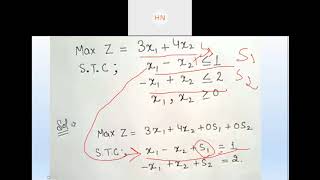 HN
Max Z = 3x₁ + 4x₂
S.T.C; x₁ - x₂ ≤ 1 S₁
-x₁ + x₂ ≤ 2 S₂
x₁, x₂ ≥ 0
Max Z = 3x₁ + 4x₂ + 0S₁ + 0S₂
S.T.C; x₁ - x₂ + S₁ = 1
-x₁ + x₂ + S₂ = 2.